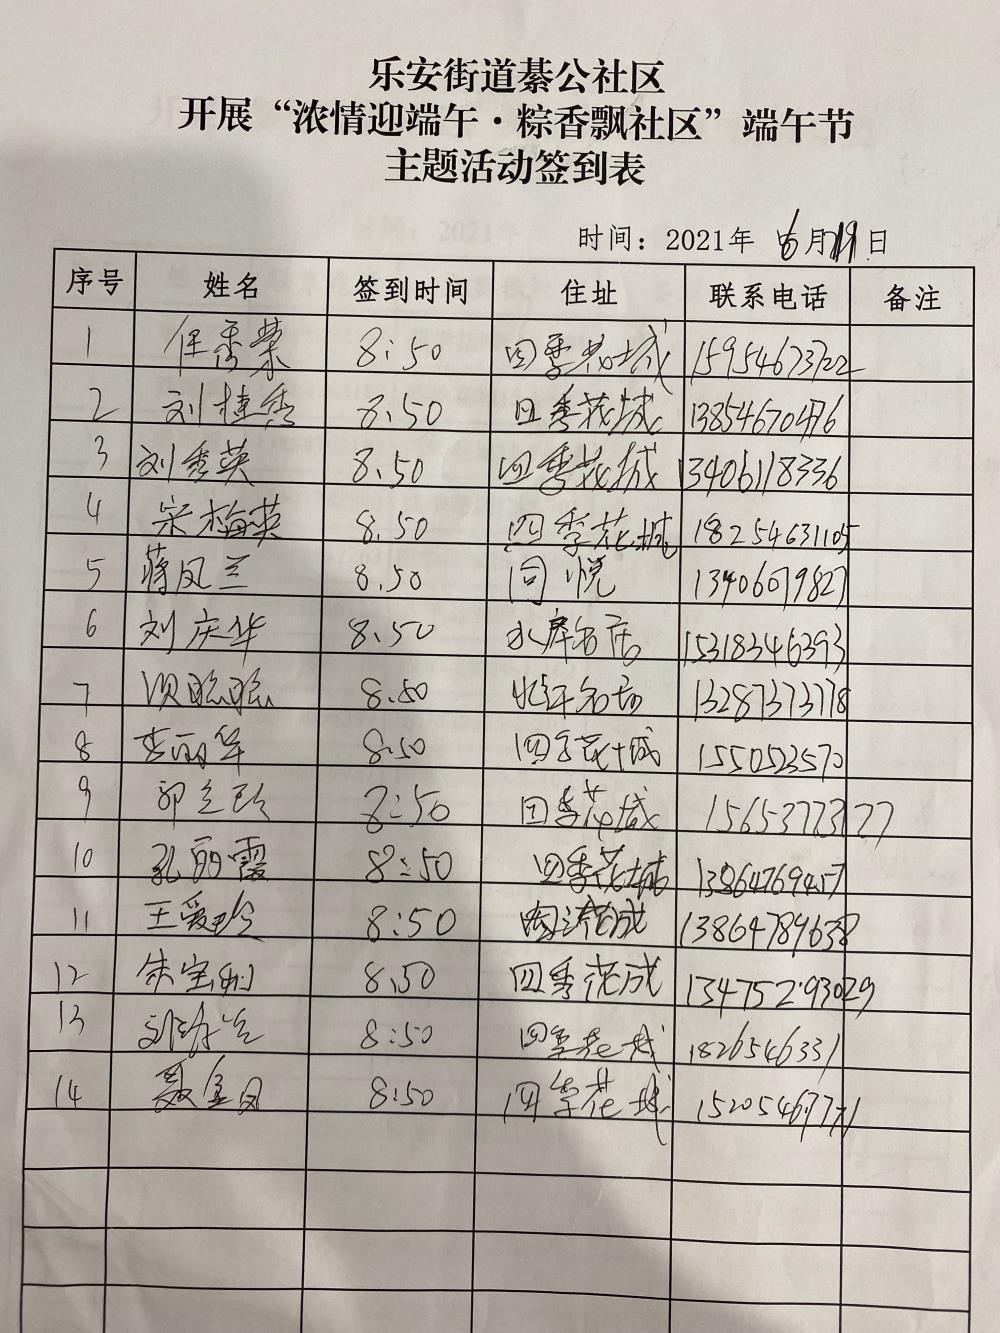 乐安街道綦公社区
开展“浓情迎端午·粽香飘社区”端午节
主题活动签到表
时间：2021年 6月 日
序号 姓名 签到时间 住址 联系电话 备注
1 任秀荣 8:50 四季花城 15954673722
2 刘桂香 8.50 四季花城 13854670476
3 刘秀英 8.50 四季花城 13406118336
4 宋梅英 8.50 四季花城 18254631105
5 蒋凤兰 8.50 同悦 13406079827
6 刘庆华 8.50 水岸名居 15318346393
7 8.50 13287373778
8 李丽华 8.50 四季花城 1550523570
9 8:50 四季花城 15653773177
10 孔丽霞 8:50 四季花城 13864769457
11 王爱玲 8:50 13864789638
12 朱宝 8.50 四季花成 13475293029
13 8:50 四季花城 1826546331
14 聂金凤 8:50 四季花城 15205467771